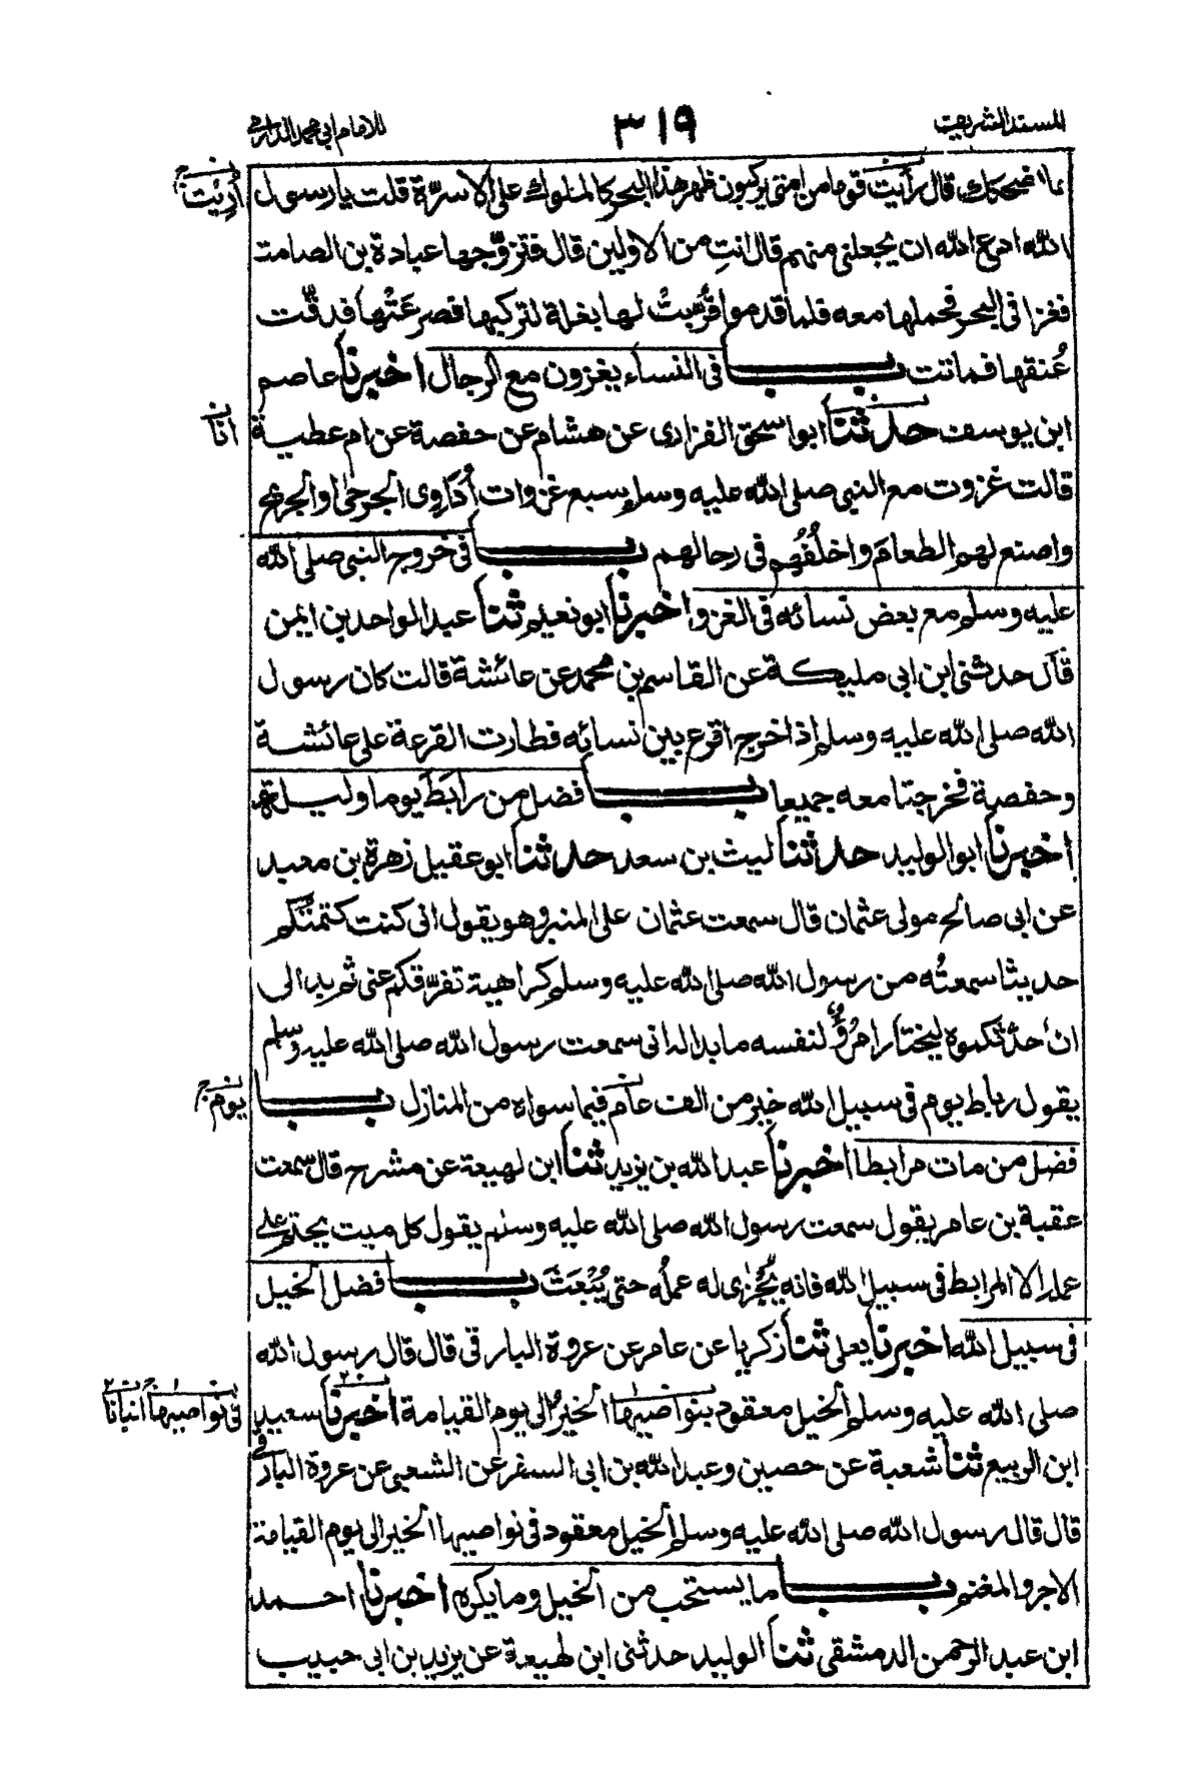 المسند الشريف
٣١٩
للامام ابى محمد الدارمى
ما اضحكك قال رأيت قوما من امتى يركبون ظهر هذا البحر كالملوك على الاسرّة قلت يا رسول
أُرِيْتُ نـ ج
الله ادع الله ان يجعلنى منهم قال انتِ من الاولين قال فتزوّجها عبادة بن الصامت
فغزا فى البحر فحملها معه فلما قدموا قُرّبتْ لها بغلة لتركبها فصرعَتْها فدقّت
عُنقها فماتت بــاب فى النساء يغزون مع الرجال اخبرنا عاصم
ابن يوسف حدثنا ابو اسحق الفزارى عن هشام عن حفصة عن ام عطية
انا نـ
قالت غزوت مع النبى صلى الله عليه وسلم سبع غزوات أُدَاوِى الجرحى او الجريح
واصنع لهم الطعامَ واخلُفُهم فى رحالهم بــاب فى خروج النبى صلى الله
عليه وسلم مع بعض نسائه فى الغزو اخبرنا ابو نعيم ثنا عبد الواحد بن ايمن
قال حدثنى ابن ابى مليكة عن القاسم بن محمد عن عائشة قالت كان رسول
الله صلى الله عليه وسلم إذا خرج اقرع بين نسائه فطارت القرعة على عائشة
وحفصة فخرجتا معه جميعا بــاب فضل من رابَطَ يوما وليلة
اخبرنا ابو الوليد حدثنا ليث بن سعد حدثنا ابو عقيل زهرة بن معبد
عن ابى صالح مولى عثمان قال سمعت عثمان على المنبر وهو يقول انى كنت كتمتكم
حديثا سمعتُه من رسول الله صلى الله عليه وسلم كراهية تفرّقكم عنى ثم بدا لى
ان أحدّثكموه ليختار امرُؤٌ لنفسه ما بدا له انى سمعت رسول الله صلى الله عليه وسلم
يقول رباط يوم فى سبيل الله خير من الف عام فيما سواه من المنازل بــاب
يوم نـ ج
فضل من مات مرابطا اخبرنا عبد الله بن يزيد ثنا ابن لهيعة عن مشرح قال سمعت
عقبة بن عامر يقول سمعت رسول الله صلى الله عليه وسلم يقول كل ميت يختم على
عمله الا المرابط فى سبيل الله فانه يُجْزٰى له عملُه حتى يُبْعَثَ بــاب فضل الخيل
فى سبيل الله اخبرنا يعلى ثنا زكريا عن عامر عن عروة البارقى قال قال رسول الله
صلى الله عليه وسلم الخيل معقود بنواصيها الخيرُ الى يوم القيامة اخبرنا سعيد
فى نواصيها انبانا
ابن الربيع ثنا شعبة عن حصين وعبد الله بن ابى السفر عن الشعبى عن عروة البارقى
قال قال رسول الله صلى الله عليه وسلم الخيل معقود فى نواصيها الخير الى يوم القيامة
الاجر والمغنم بــاب ما يستحب من الخيل وما يكره اخبرنا احمد
ابن عبد الرحمن الدمشقى ثنا الوليد حدثنى ابن لهيعة عن يزيد بن ابى حبيب